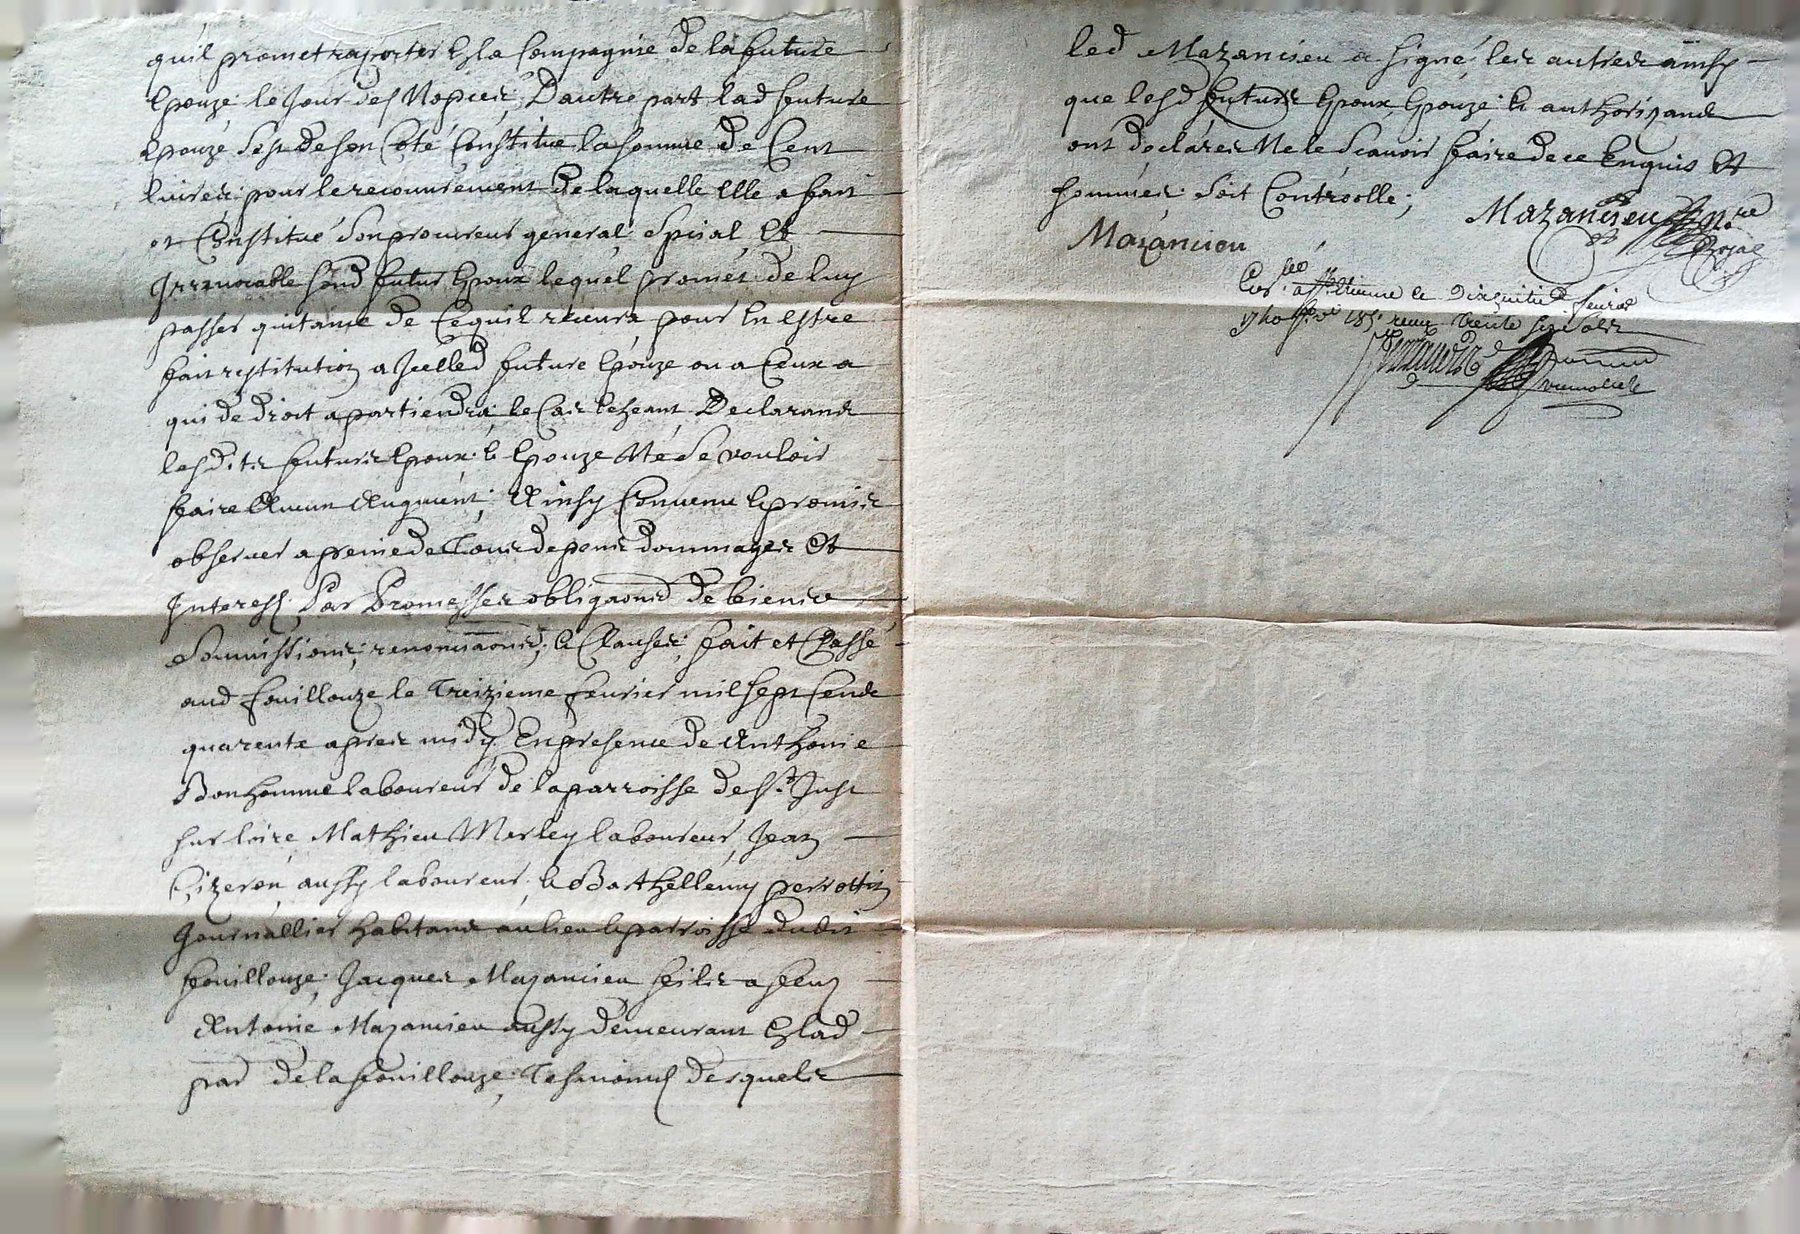 qu'il promet raporter En la Compagnie de la future
Epouze le Jour des Nopces; D'autre part lad future
Epouze s'est de son Coté Constitue la somme de Cent
livres; pour le recouvrement de laquelle elle a fait
et Constitué son procureur general, Special, Et
Irrevocable sond futur Epoux lequel promet de luy
passer quitance de Ce qu'il recevra pour En Estre
fait restitution a Icelled future Epouze ou a Ceux a
qui de droit apartiendra, le Cas Echeant, Declarants
lesdits futurs Epoux & Epouze Ne se vouloir
faire Aucun Augment; Ainsy Convenu & promis
observer a peine de Tous depens dommages Et
Interests, Par Promesses obligaons de biens
Soumissions, renonciaons, & Clauses, fait et Passé
aud fouillouze le Treizieme fevrier mil sept Cents
quarente apres midy, En presence de Anthoine
Bonhomme laboureur de la parroisse de St Just
sur loire, Mathieu Merley laboureur, Jean
Cizeron, aussy laboureur, & Barthellemy perrottin
Journallier habitants au lieu & parroisse dudit
fouillouze; Jacques Mazancieu fils a feu
Antoine Mazancieu aussy demeurant En lad
par de la fouillouze; Tesmoins desquels
led Mazancieu a signé, les autres ainsy
que lesd futurs Epoux, Epouze; & authorizants
ont declarés Ne le Scavoir faire de ce Enquis Et
sommés. Soit Controolle;
Mazancieu Nre Royal
Mazancieu
a St Etienne le Dixhuit fevrier
1740 recu Trente six sols